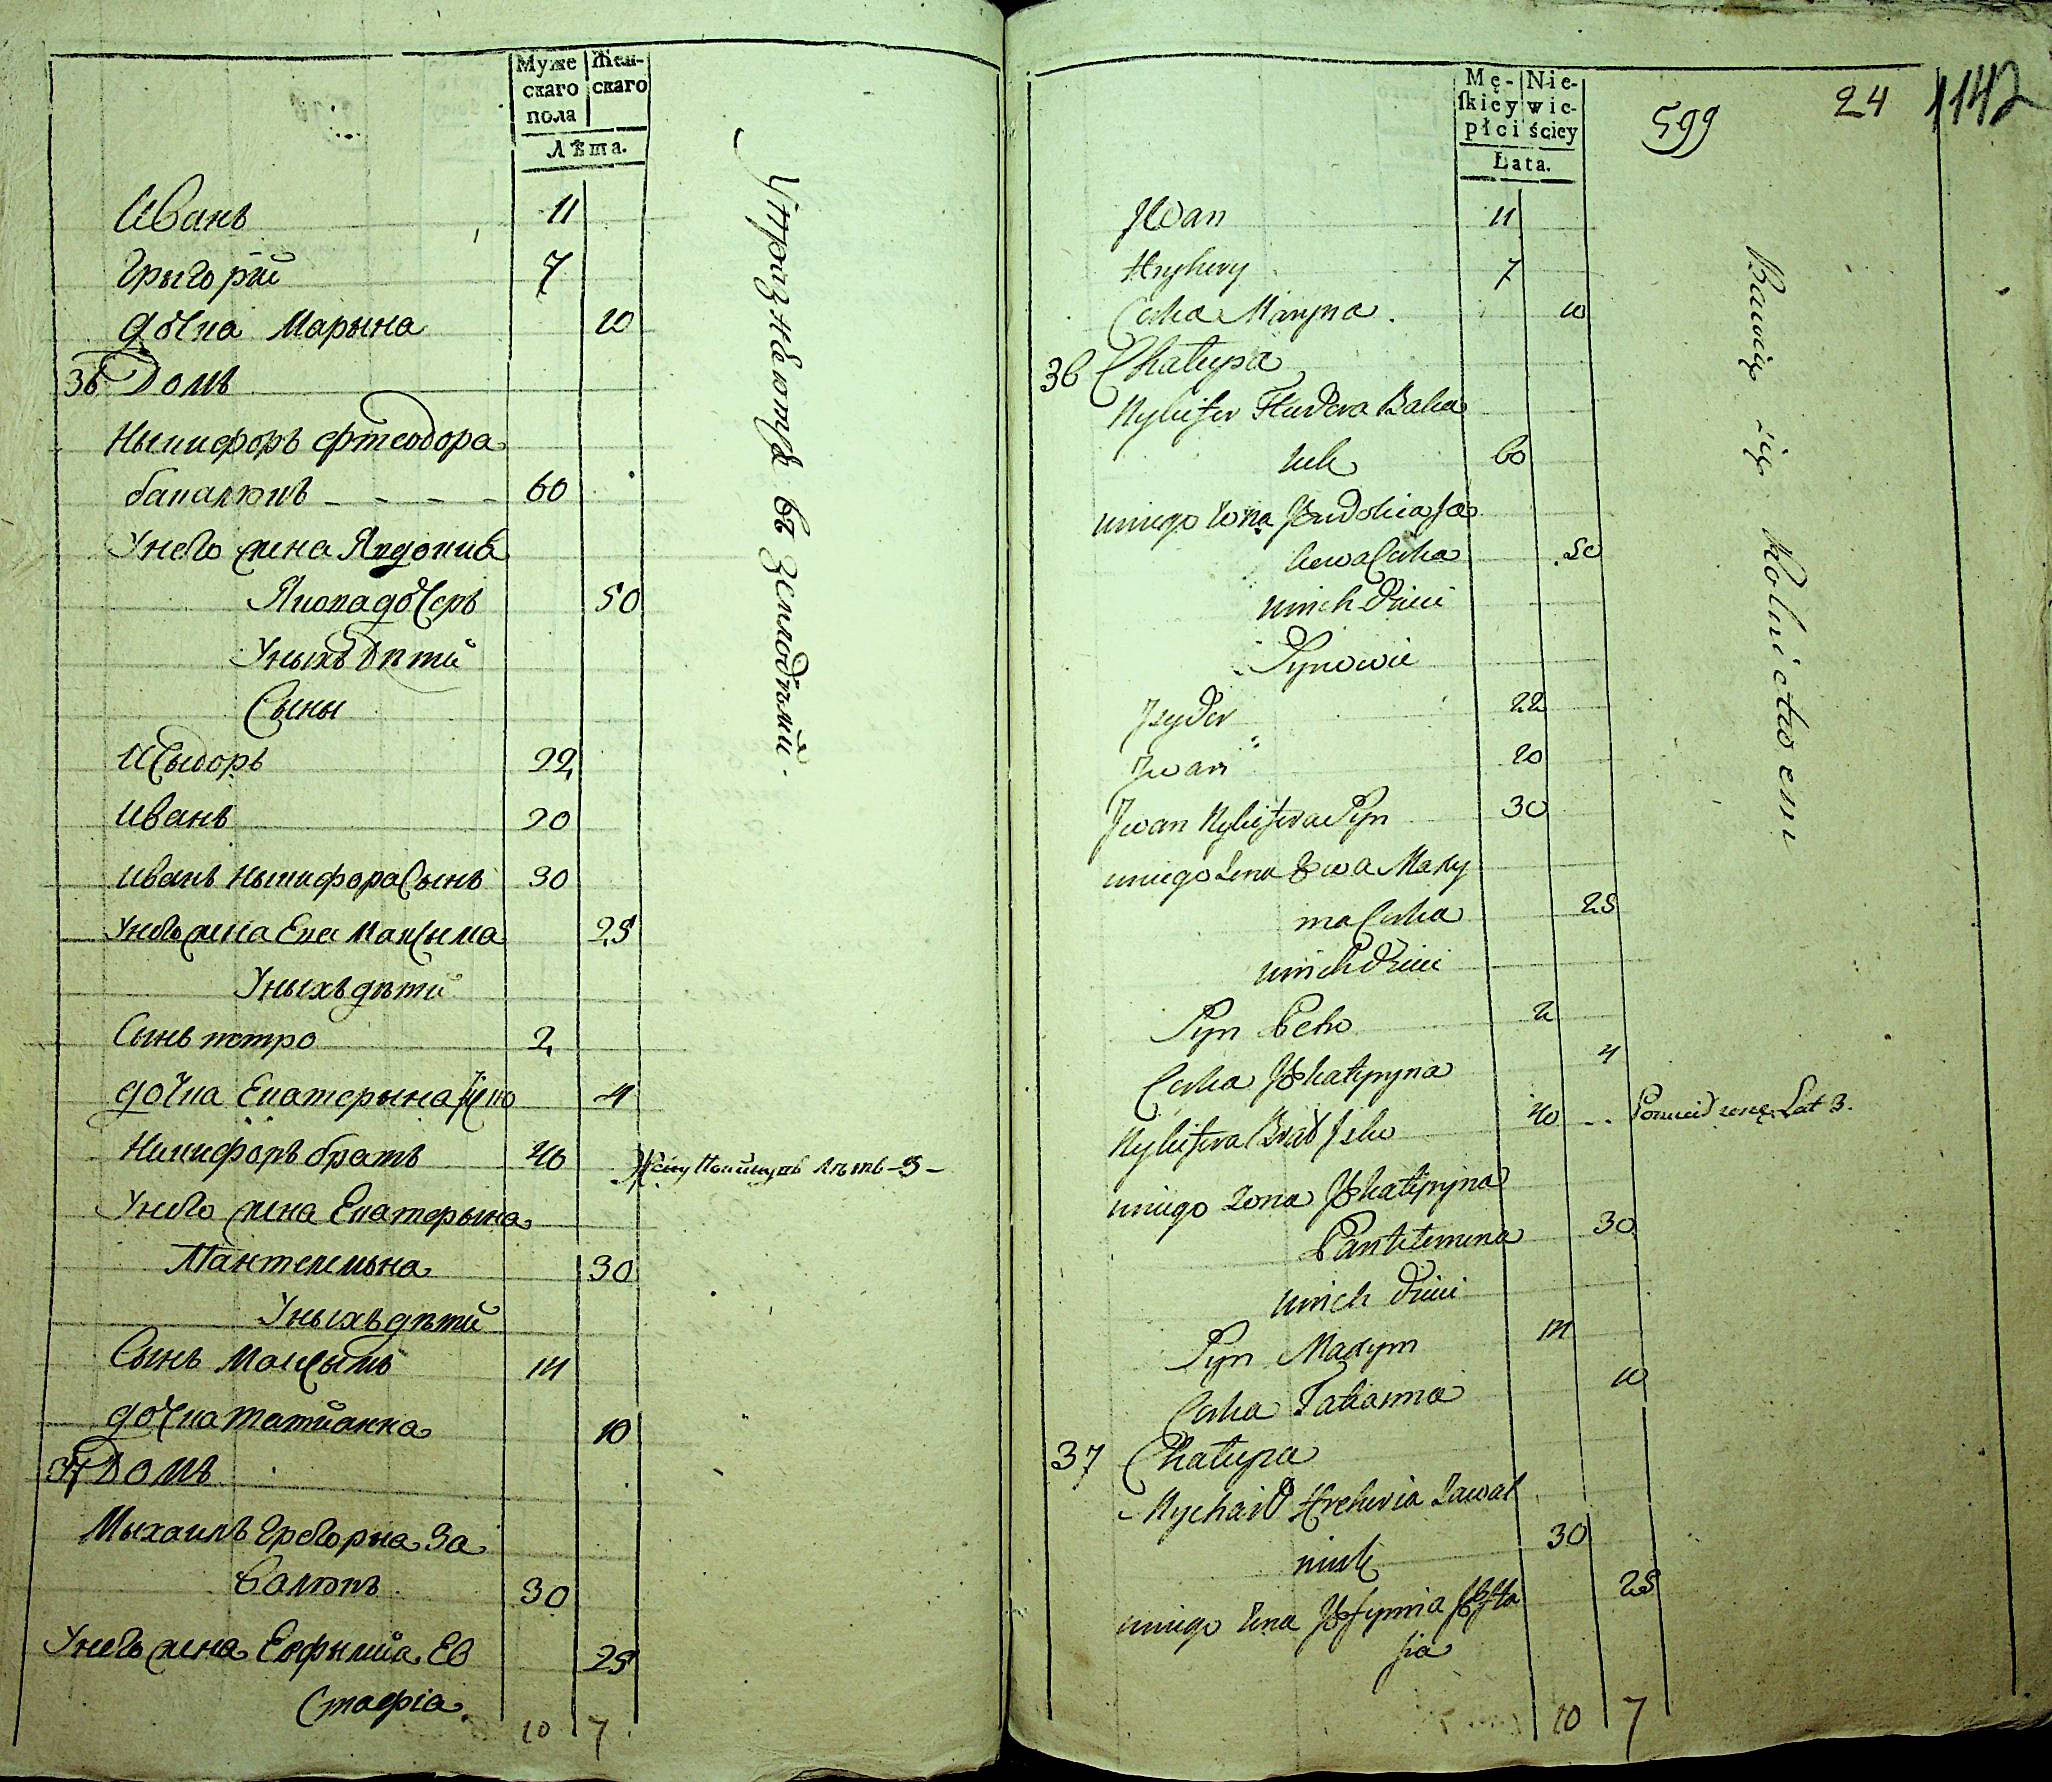 Муже Жен-
скаго скаго
пола
Лѣта.
Иванъ 11
Грыгорiй 7
дочка Марына 10
36 Домъ
Ныкифоръ Фтеодора
бакалюкъ - - - - 60
Унего жена Явдокиа
Яковадочеръ 50
Уныхъ дѣтй
Сыны
Исыдоръ 22
Иванъ 20
Иванъ Ныкифора Сынъ 30
Унего жена Ева Максыма 25
Уныхъ дѣтй
Сынъ петро 2
дочка Екатерына 4
Никифоръ братъ 40
Унего жена Екатерына
Пантелемона 30
Уныхъ дѣтй
Сынъ Максымъ 14
дочка татианна 10
37 Домъ
Мыхаилъ Грегорна За
валюкъ 30
Унего жена Евфымiа Ев
стафiа. 25
10 7
въ землодѣлiй.
Mę- Nie-
ſkiey wie-
płci ściey
Lata.
599 24 1142
Iwan 11
Hryhory 7
Corka Maryna 10
36 Chałupa
Nykifor Fteodora Baka
luk 60
uniego żona Jewdokia Ja
kowa Corka 50
unich dzieci
Synowie
Isydor 22
Iwan 20
Iwan Nykifora Syn 30
uniego żona Ewa Maxy
ma Corka 25
unich dzieci
Syn Petro 2
Corka Jekateryna 4
Nykifora Brat 40 - -
uniego żona Jekateryna
Pantelemona 30
unich dzieci
Syn Maxym 14
Corka Tatianna 10
37 Chałupa
Mychaił Hrehoria Zawal
niuk 30
uniego żona Jefymia Jefsta
fia 25
10 7
Bawią się Rolnictwem
Porzucił żonę Lat 3.